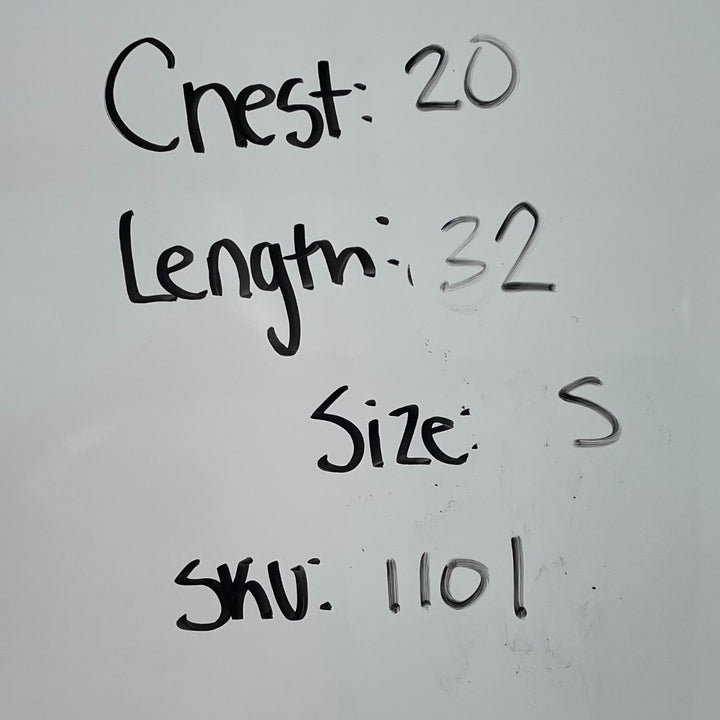 Chest: 20
Length: 32
Size: S
SKU: 1101